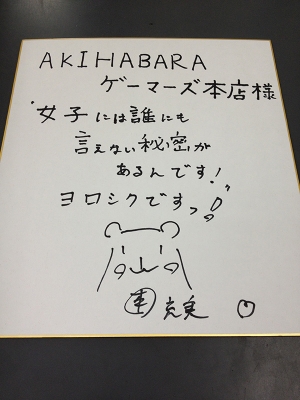 AKIHABARA
ゲーマーズ本店様
女子には誰にも
言えない秘密が
あるんです！
ヨロシクですっ!!
克実